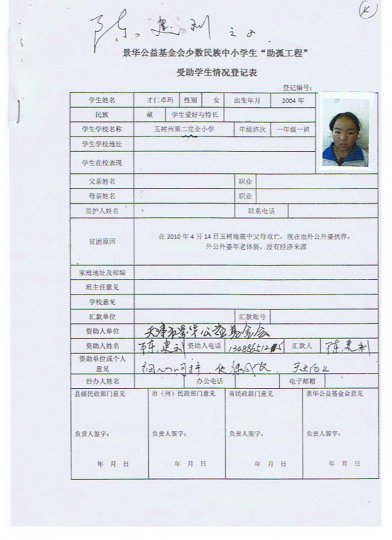 陈建利
景华公益基金会少数民族中小学生“助孤工程”
受助学生情况登记表
登记编号：
学生姓名 才仁卓玛 性别 女 出生年月 2004 年
民族 藏 学生爱好与特长
学生学校名称 玉树州第二完全小学 年级班次 一年级一班
学生学校地址
学生在校表现
父亲姓名 职业
母亲姓名 职业
监护人姓名 联系电话
贫困原因 在 2010 年 4 月 14 日玉树地震中父母双亡，现在由外公外婆抚养，
外公外婆年老体弱，没有经济来源
家庭地址及邮编
班主任意见
学校意见
汇款单位 汇款账号
资助人单位 天津市景华公益基金会
资助人姓名 陈建利 资助人电话 汇款人 陈建利
资助单位或个人
意见
经办人姓名 办公电话 电子邮箱
县级民政部门意见 市（州）民政部门意见 省民政部门意见 景华公益基金会意见
负责人签字： 负责人签字： 负责人签字： 负责人签字：
年 月 日 年 月 日 年 月 日 年 月 日